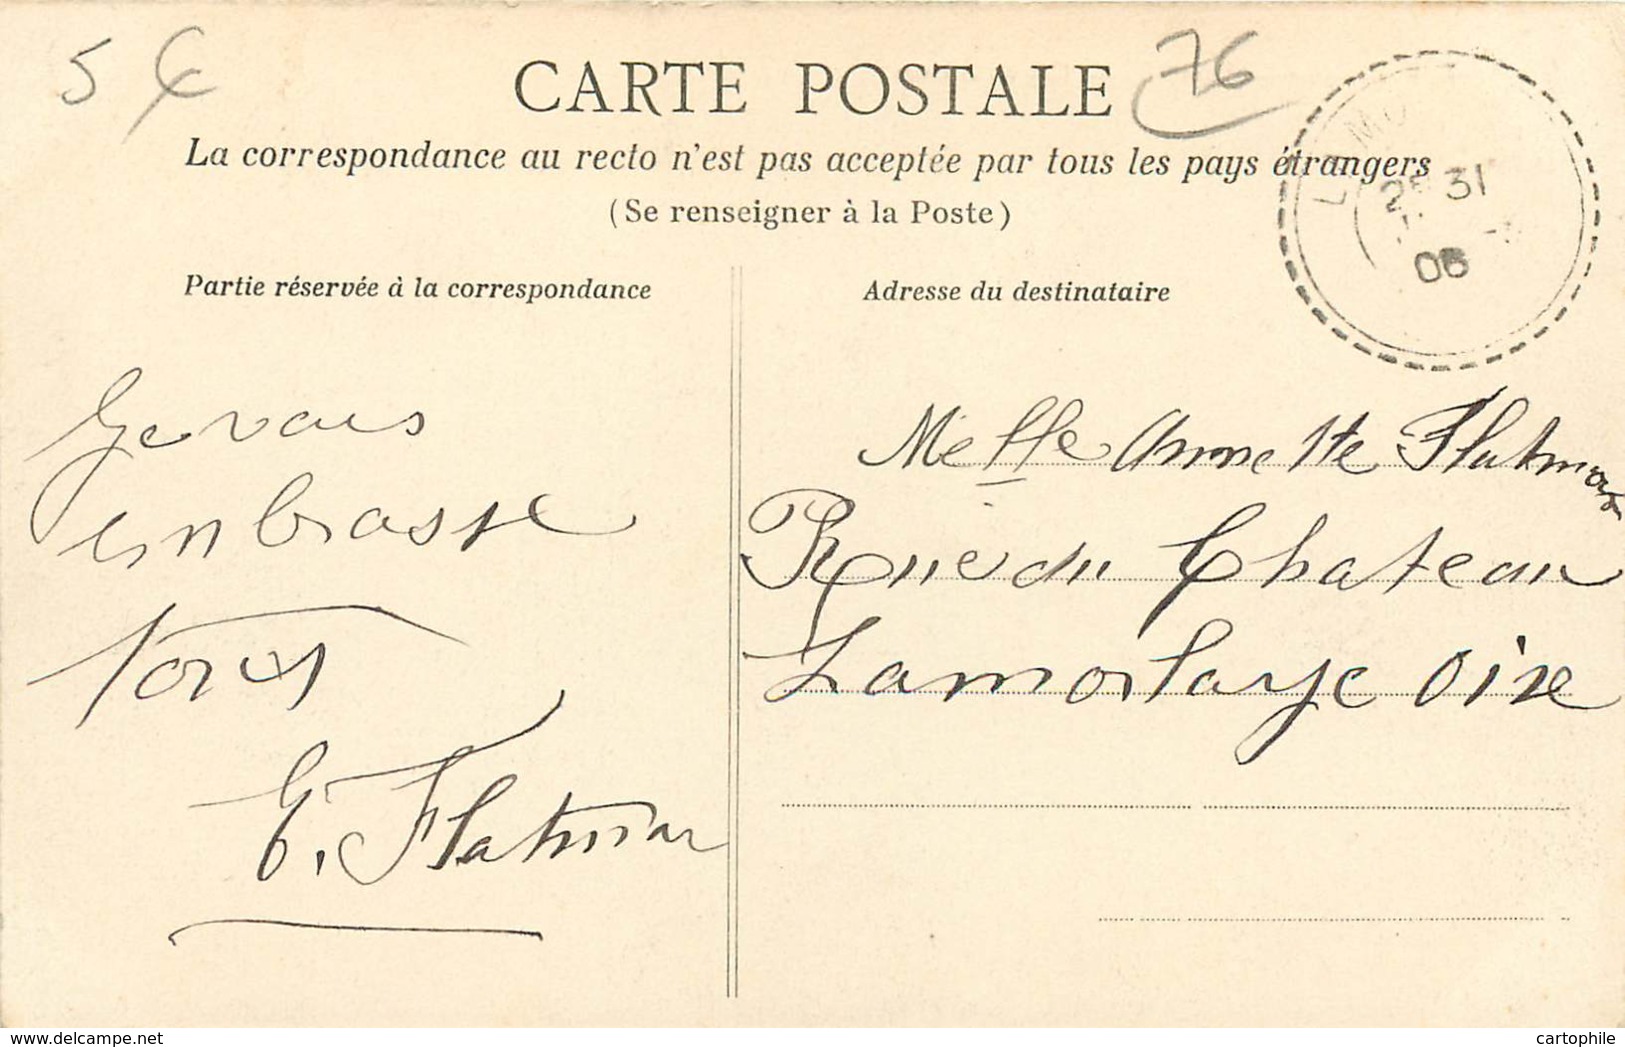 5 €
76
CARTE POSTALE
La correspondance au recto n'est pas acceptée par tous les pays étrangers
(Se renseigner à la Poste)
31
06
Partie réservée à la correspondance
Adresse du destinataire
Gervais
embrasse
tous
E. Flatman
Melle Annette Flatman
Rue du Chateau
Lamorlaye Oise
www.delcampe.net
cartophile